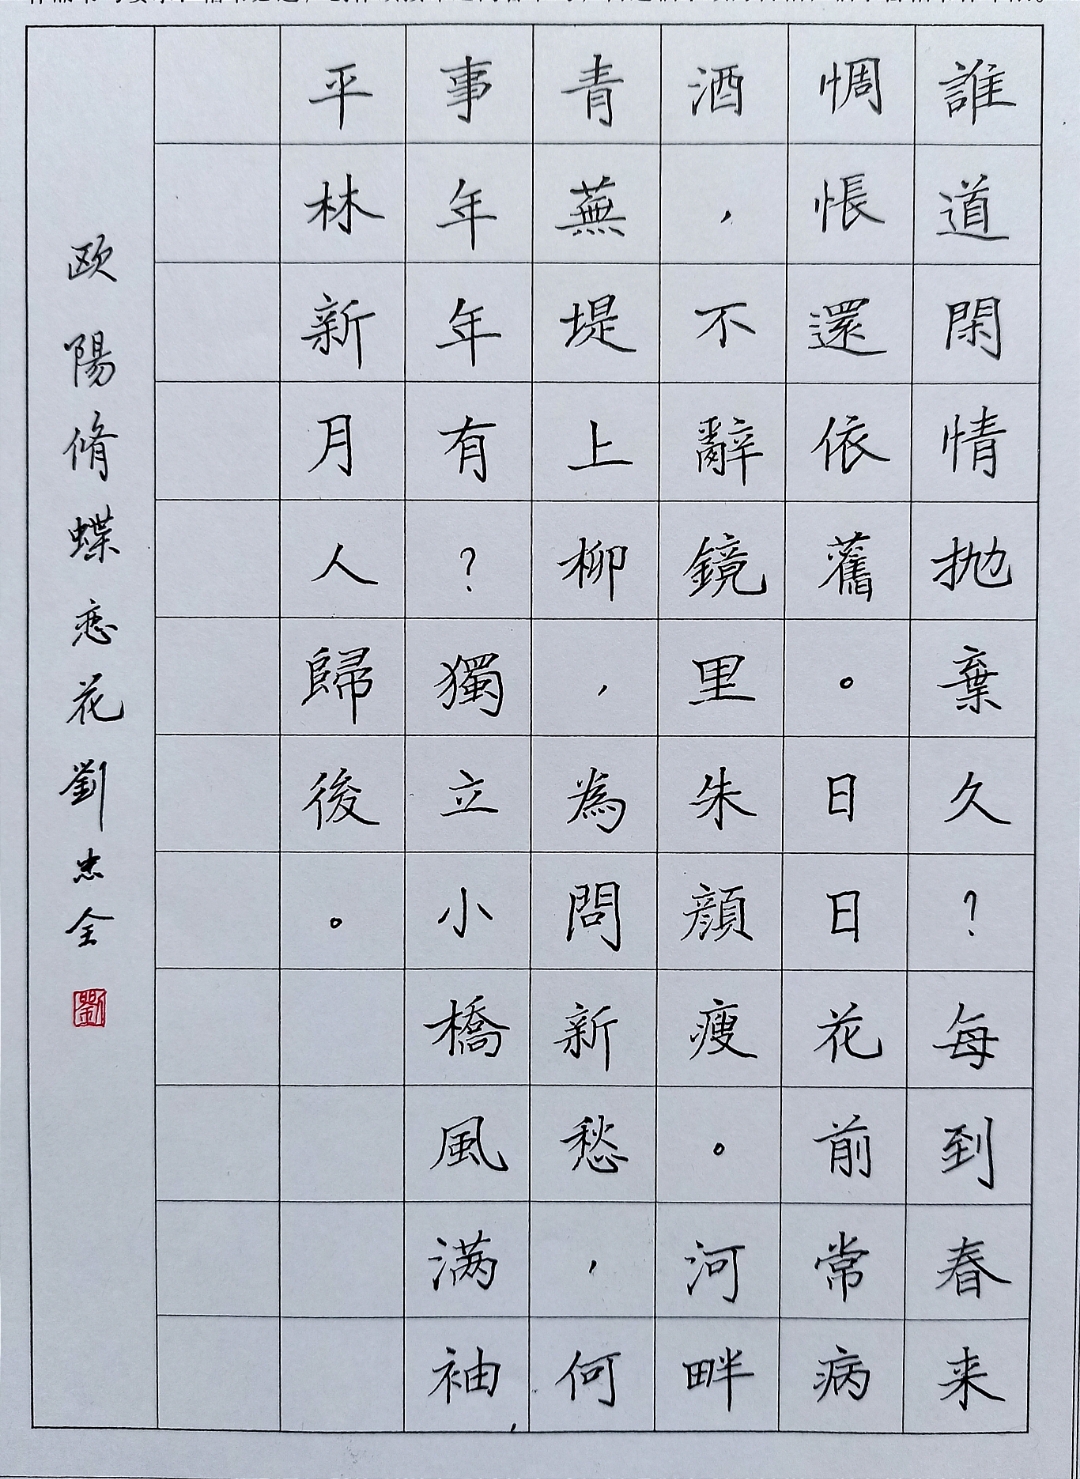 誰道閑情抛棄久？每到春来
惆悵還依舊。日日花前常病
酒，不辭鏡里朱顔瘦。河畔
青蕪堤上柳，為問新愁，何
事年年有？獨立小橋風满袖，
平林新月人歸後。
欧陽脩蝶恋花劉忠全
劉